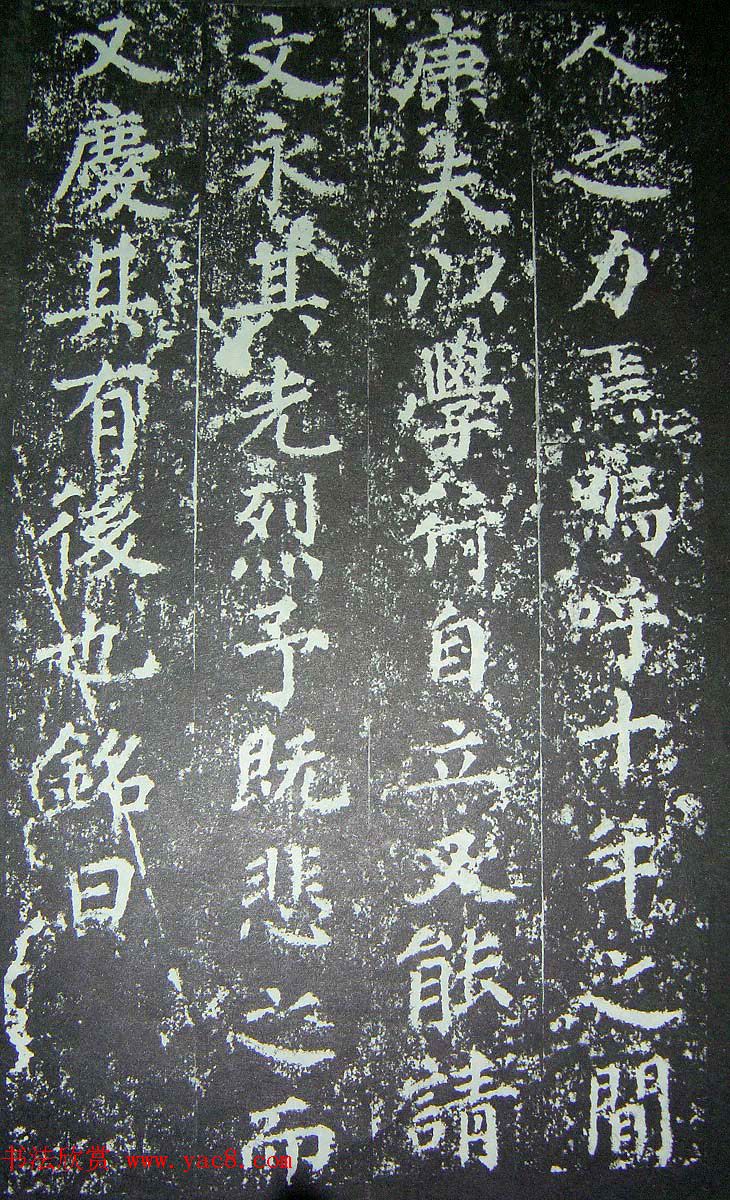 人之力焉嗚呼十年之間
康夫以學自立又能請
文永其先烈予既悲之而
又慶其有後也銘曰
书法欣赏 www.yac8.com